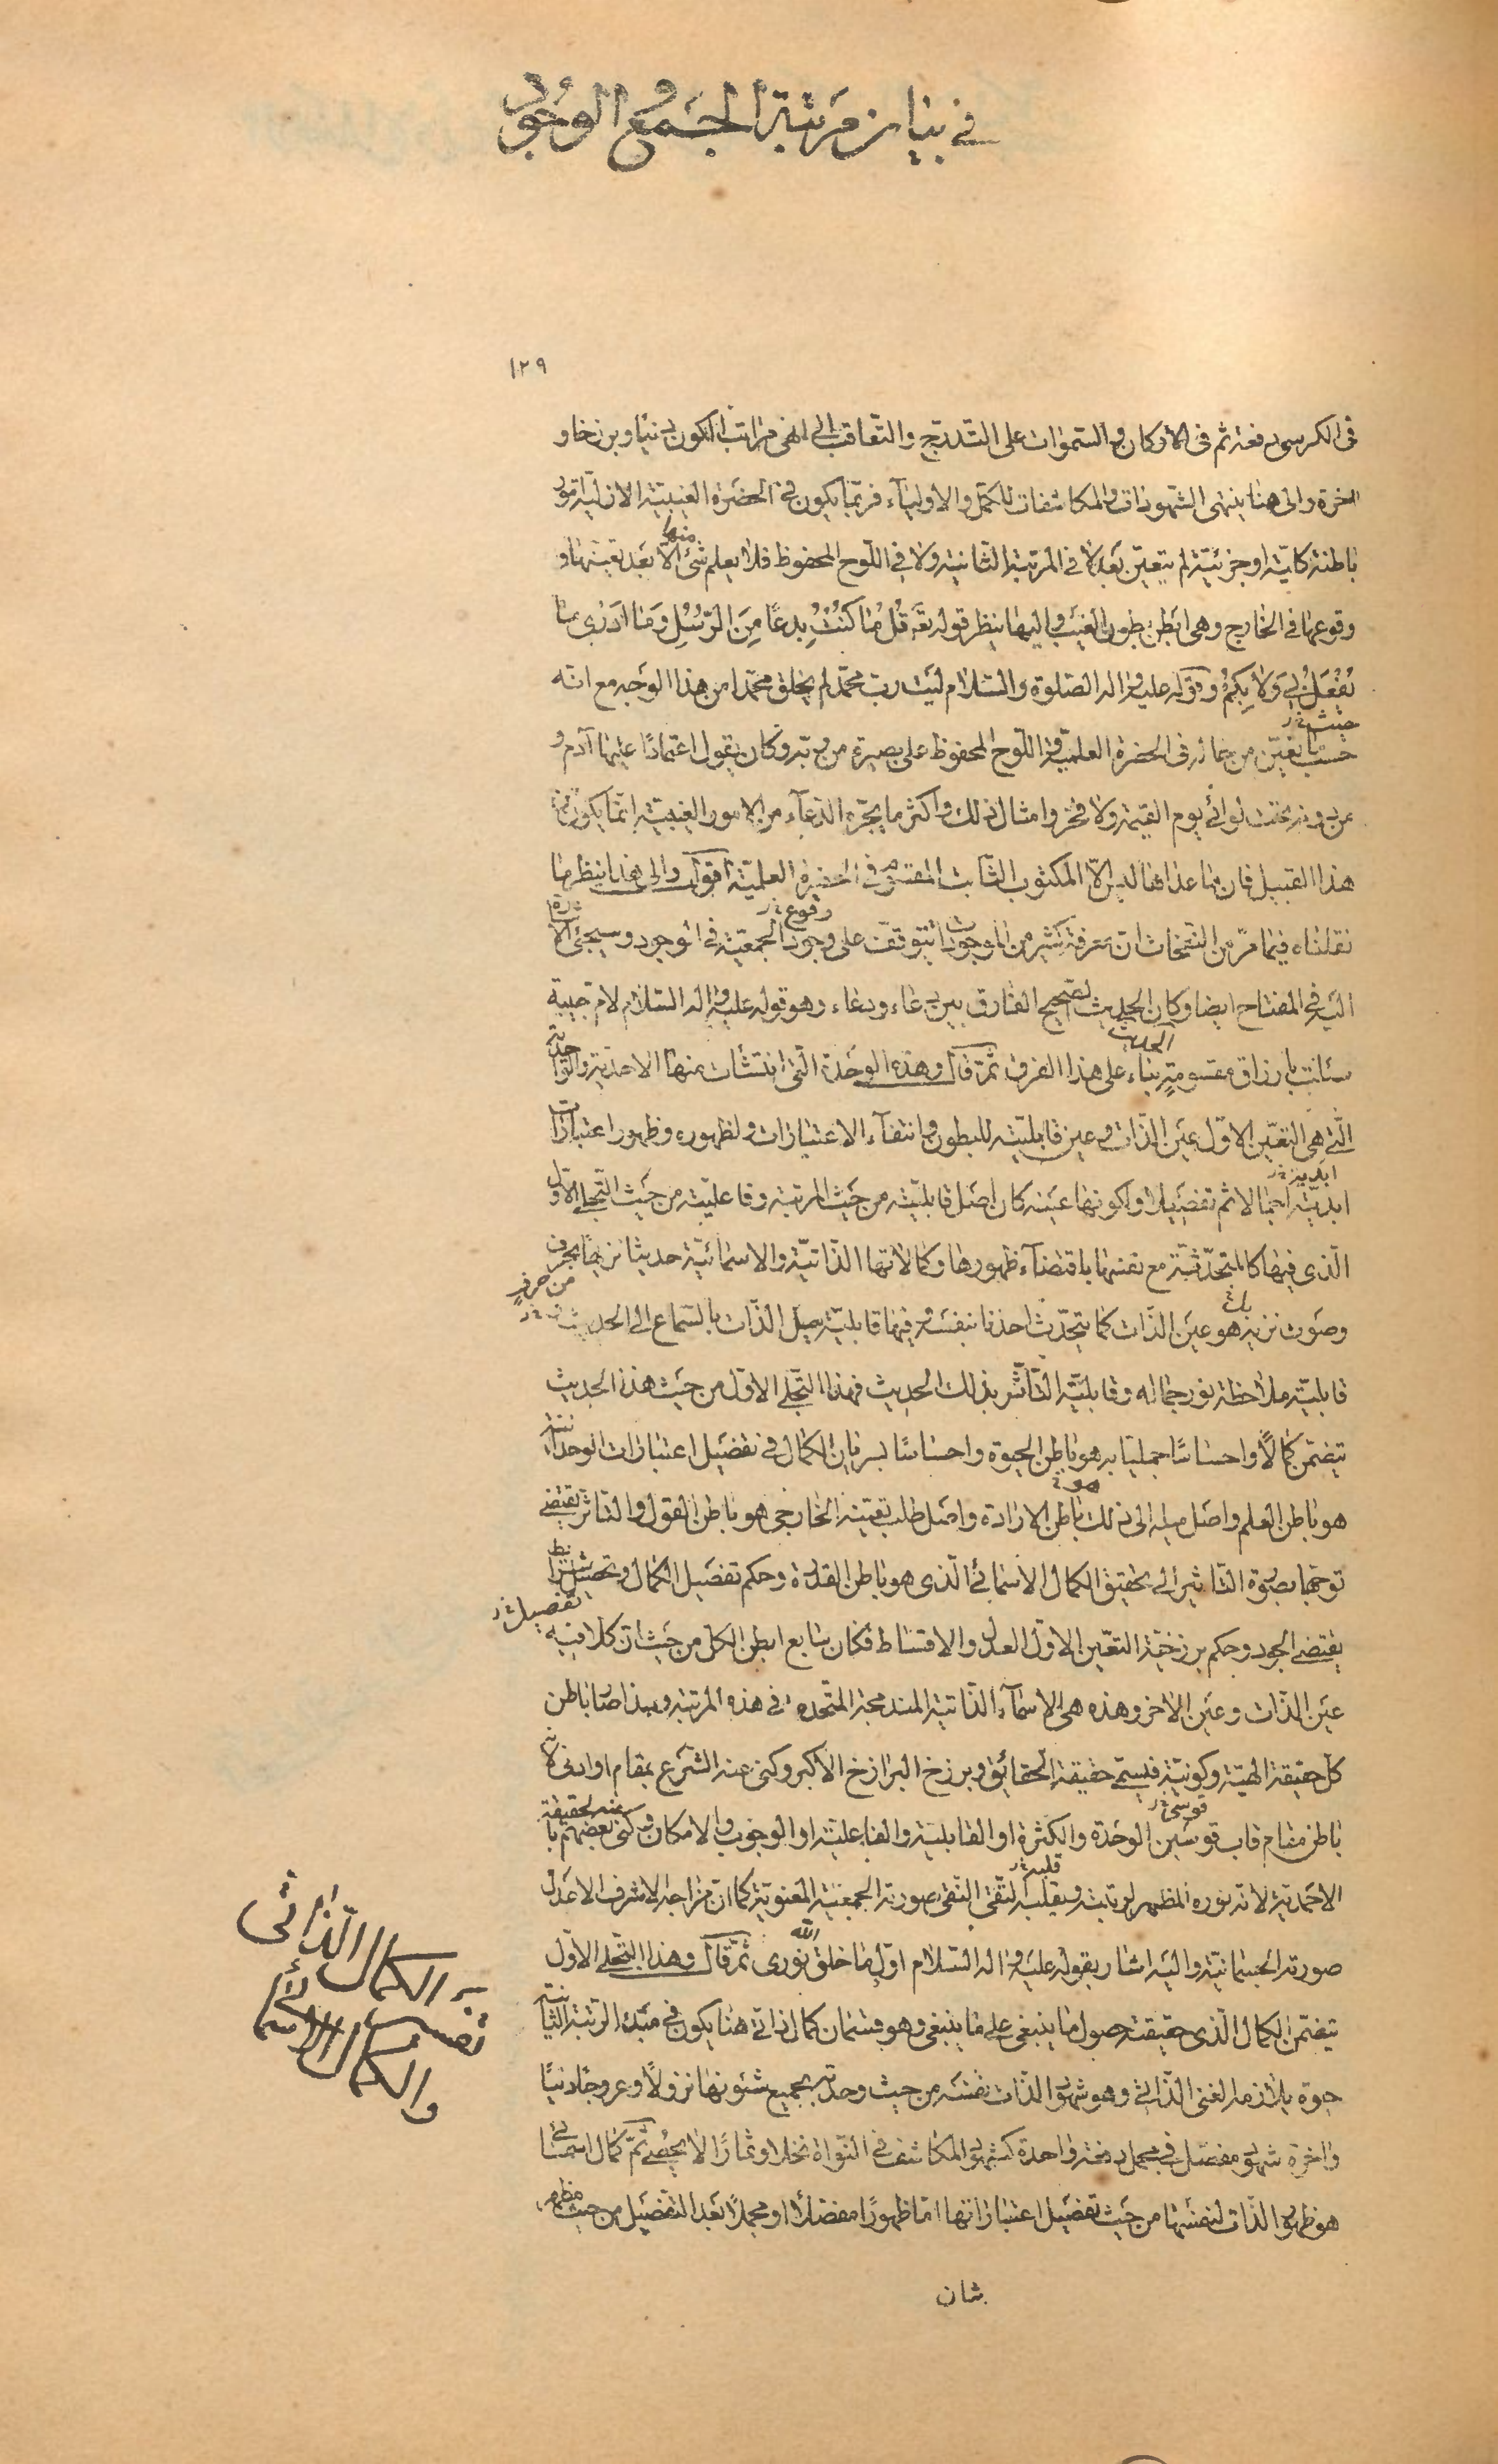 في بيان مرتبة الجمع والوجود
١٢٩
في الكرسي دفعة ثم في الأركان والسموات على التدريج والتعاقب الى انهى مراتب الكون دنيا وبرزخا و
اخرة والى هنا ينتهى الشهودات والمكاشفات للكمّل والاولياء فربّما يكون في الحضرة الغيبية الازلية امور
باطنة كلية او جزئية لم يتعين بعد لا في المرتبة الثانية ولا في اللوح المحفوظ فلا يعلم شئ منها الا بعد تعينها و
وقوعها في الخارج وهى ابطن بطون الغيب واليها ينظر قوله تع قُلْ مٰا كُنْتُ بِدعًا مِنَ الرّسُلِ وَمٰا ادَرْى مٰا
يُفْعَلُ بِى وَلٰا بِكُمْ وقوله عليه واله الصلوة والسلام ليت رب محمد لم يخلق محمدا من هذا الوجه مع انه
حيث خ ر
حسب ما تعين من جماله في الحضرة العلمية في اللوح المحفوظ على بصيرة من ربه وكان يقول اعتمادا عليها آدم و
من دونه تحت لوائى يوم القيمة ولا فخر وامثال ذلك واكثر ما يجره الدعاء من الامور الغيبية انما يكون من
هذا القبيل فان ما عدا هذا ليس الا المكتوب الثابت المقسوم في الحضرة العلمية اقول والى هذا ينظر ما
وقوع خ ر
نقلناه فيما مر من النفحات ان معرفة كثير من الموجودات يتوقف على وجود الجمعية في الوجود وسيجئ الاشارة
اليه في المفتاح ايضا وكان الحديث الصحيح الفارق بين دعاء ودعاء وهو قوله عليه واله السلام لام حبيبة
سئلت بارزاق مقسومة الحديث بناء على هذا الفرق ثمّ قال وهذه الوحدة التى انتشأت منها الاحدية والواحدية
الّتى هى التعيّن الاوّل عين الذّات وعين قابليته للبطون وانتفاء الاعتبارات ولظهوره وظهور اعتبارات
ابديته خ ر
ابدية اجمالا ثم تفصيلا ولكونها عينه كان اصل قابليته من حيث المرتبة وفاعليته من حيث التجلى الاول
الّذى فيها كالمتحدّثة مع نفسها باقتضاء ظهورها وكمالاتها الذّاتيّة والاسمائيّة حديثا نزيها بحرف
من حرف
وصوت نزيه هو عين الذّات كما يتحدّث احدنا بنفسه وفيها قابليّة ميل الذّات بالسّماع الى الحديث
قابليّة ملاحظة نور جماله وقابليّة التّأثّر بذلك الحديث فهذا التجلى الاوّل من حيث هذا الحديث
يتضمّن كمالًا واحساسًا جمليّا به هو باطن الحيوة واحساسًا بسريان الكمال في تفصيل اعتبارات الوحدانية
هو باطن العلم واصل ميله الى ذلك هو باطن الارادة واصل طلب تعينه الخارجى هو باطن القول والتأثر يقتضى
توجها بصورة التأثير الى تحقيق الكمال الاسمائى الّذى هو باطن القدرة وحكم تفصيل الكمال وتحصيل شرائط
تفصيل خ ر
يقتضى الجود وحكم برزخيّة التعّين الاوّل العدل والاقساط فكان سابع ابطن الكل من حيث ان كلا فيه
عين الذّات وعين الاخر وهذه هى الاسماء الذّاتية المندمجة المتّحدة في هذه المرتبة وبهذا صار باطن
كلّ حقيقة الهيّة وكونيّة فيسمّى حقيقة الحقائق وبرزخ البرازخ الاكبر وكنى عنه الشّرع بمقام او ادنى لانه
قوسى خ ر
باطن مقام قاب قوسين الوحدة والكثرة او القابلية والفاعلية او الوجوب والامكان وكنى بعضهم عنه بالحقيقة
قلبه خ ر
الاحمدية لانه نوره المظهر لربّانيته وبقلبه التّقى النّقى صورته الجمعيّة المعنويّة كما ان مزاجه الاشرف الاعدل
صورته الجسمانيّة واليه اشار بقوله عليه واله السّلام اوّل ما خلق الله نورى ثمّ قال وهذا التّجلى الاوّل
يتضمّن الكمال الّذى حقيقته حصول ما ينبغى على ما ينبغى وهو قسمان كمال ذاتى هنا يكون في مبدء الرّتبة الثّانية
حيوة يلازمه الغنى الذّاتى وهو شهود الذّات نفسه من حيث وحدته بجميع شئونها نزولًا وعروجًا دنيًا
واخرة شهود مفصّل في مجمل دفعة واحدة كشهود المكاشف في النّواة نخلا وثمارًا لا يحصى ثمّ كمال اسمائى
هو ظهور الذّات لنفسها من حيث تفصيل اعتباراتها اما ظهورًا مفصّلا او مجملًا بعد التّفصيل من حيث مظهر
شان
الكمال الذاتى
والكمال الاسمائى